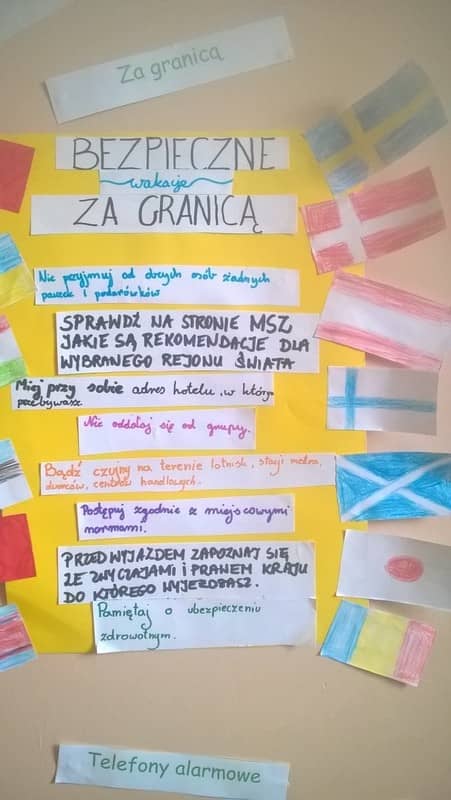 Za granicą
BEZPIECZNE
wakacje
ZA GRANICĄ
Nie przyjmuj od obcych osób żadnych
paczek i podarunków
SPRAWDŹ NA STRONIE MSZ
JAKIE SĄ REKOMENDACJE DLA
WYBRANEGO REJONU ŚWIATA
Miej przy sobie adres hotelu, w którym
przebywasz
Nie oddalaj się od grupy.
Bądź czujny na terenie lotnisk, stacji metra,
dworców, centrów handlowych.
Postępuj zgodnie z miejscowymi
normami.
PRZED WYJAZDEM ZAPOZNAJ SIĘ
ZE ZWYCZAJAMI I PRAWEM KRAJU
DO KTÓREGO WYJEŻDŻASZ.
Pamiętaj o ubezpieczeniu
zdrowotnym.
Telefony alarmowe